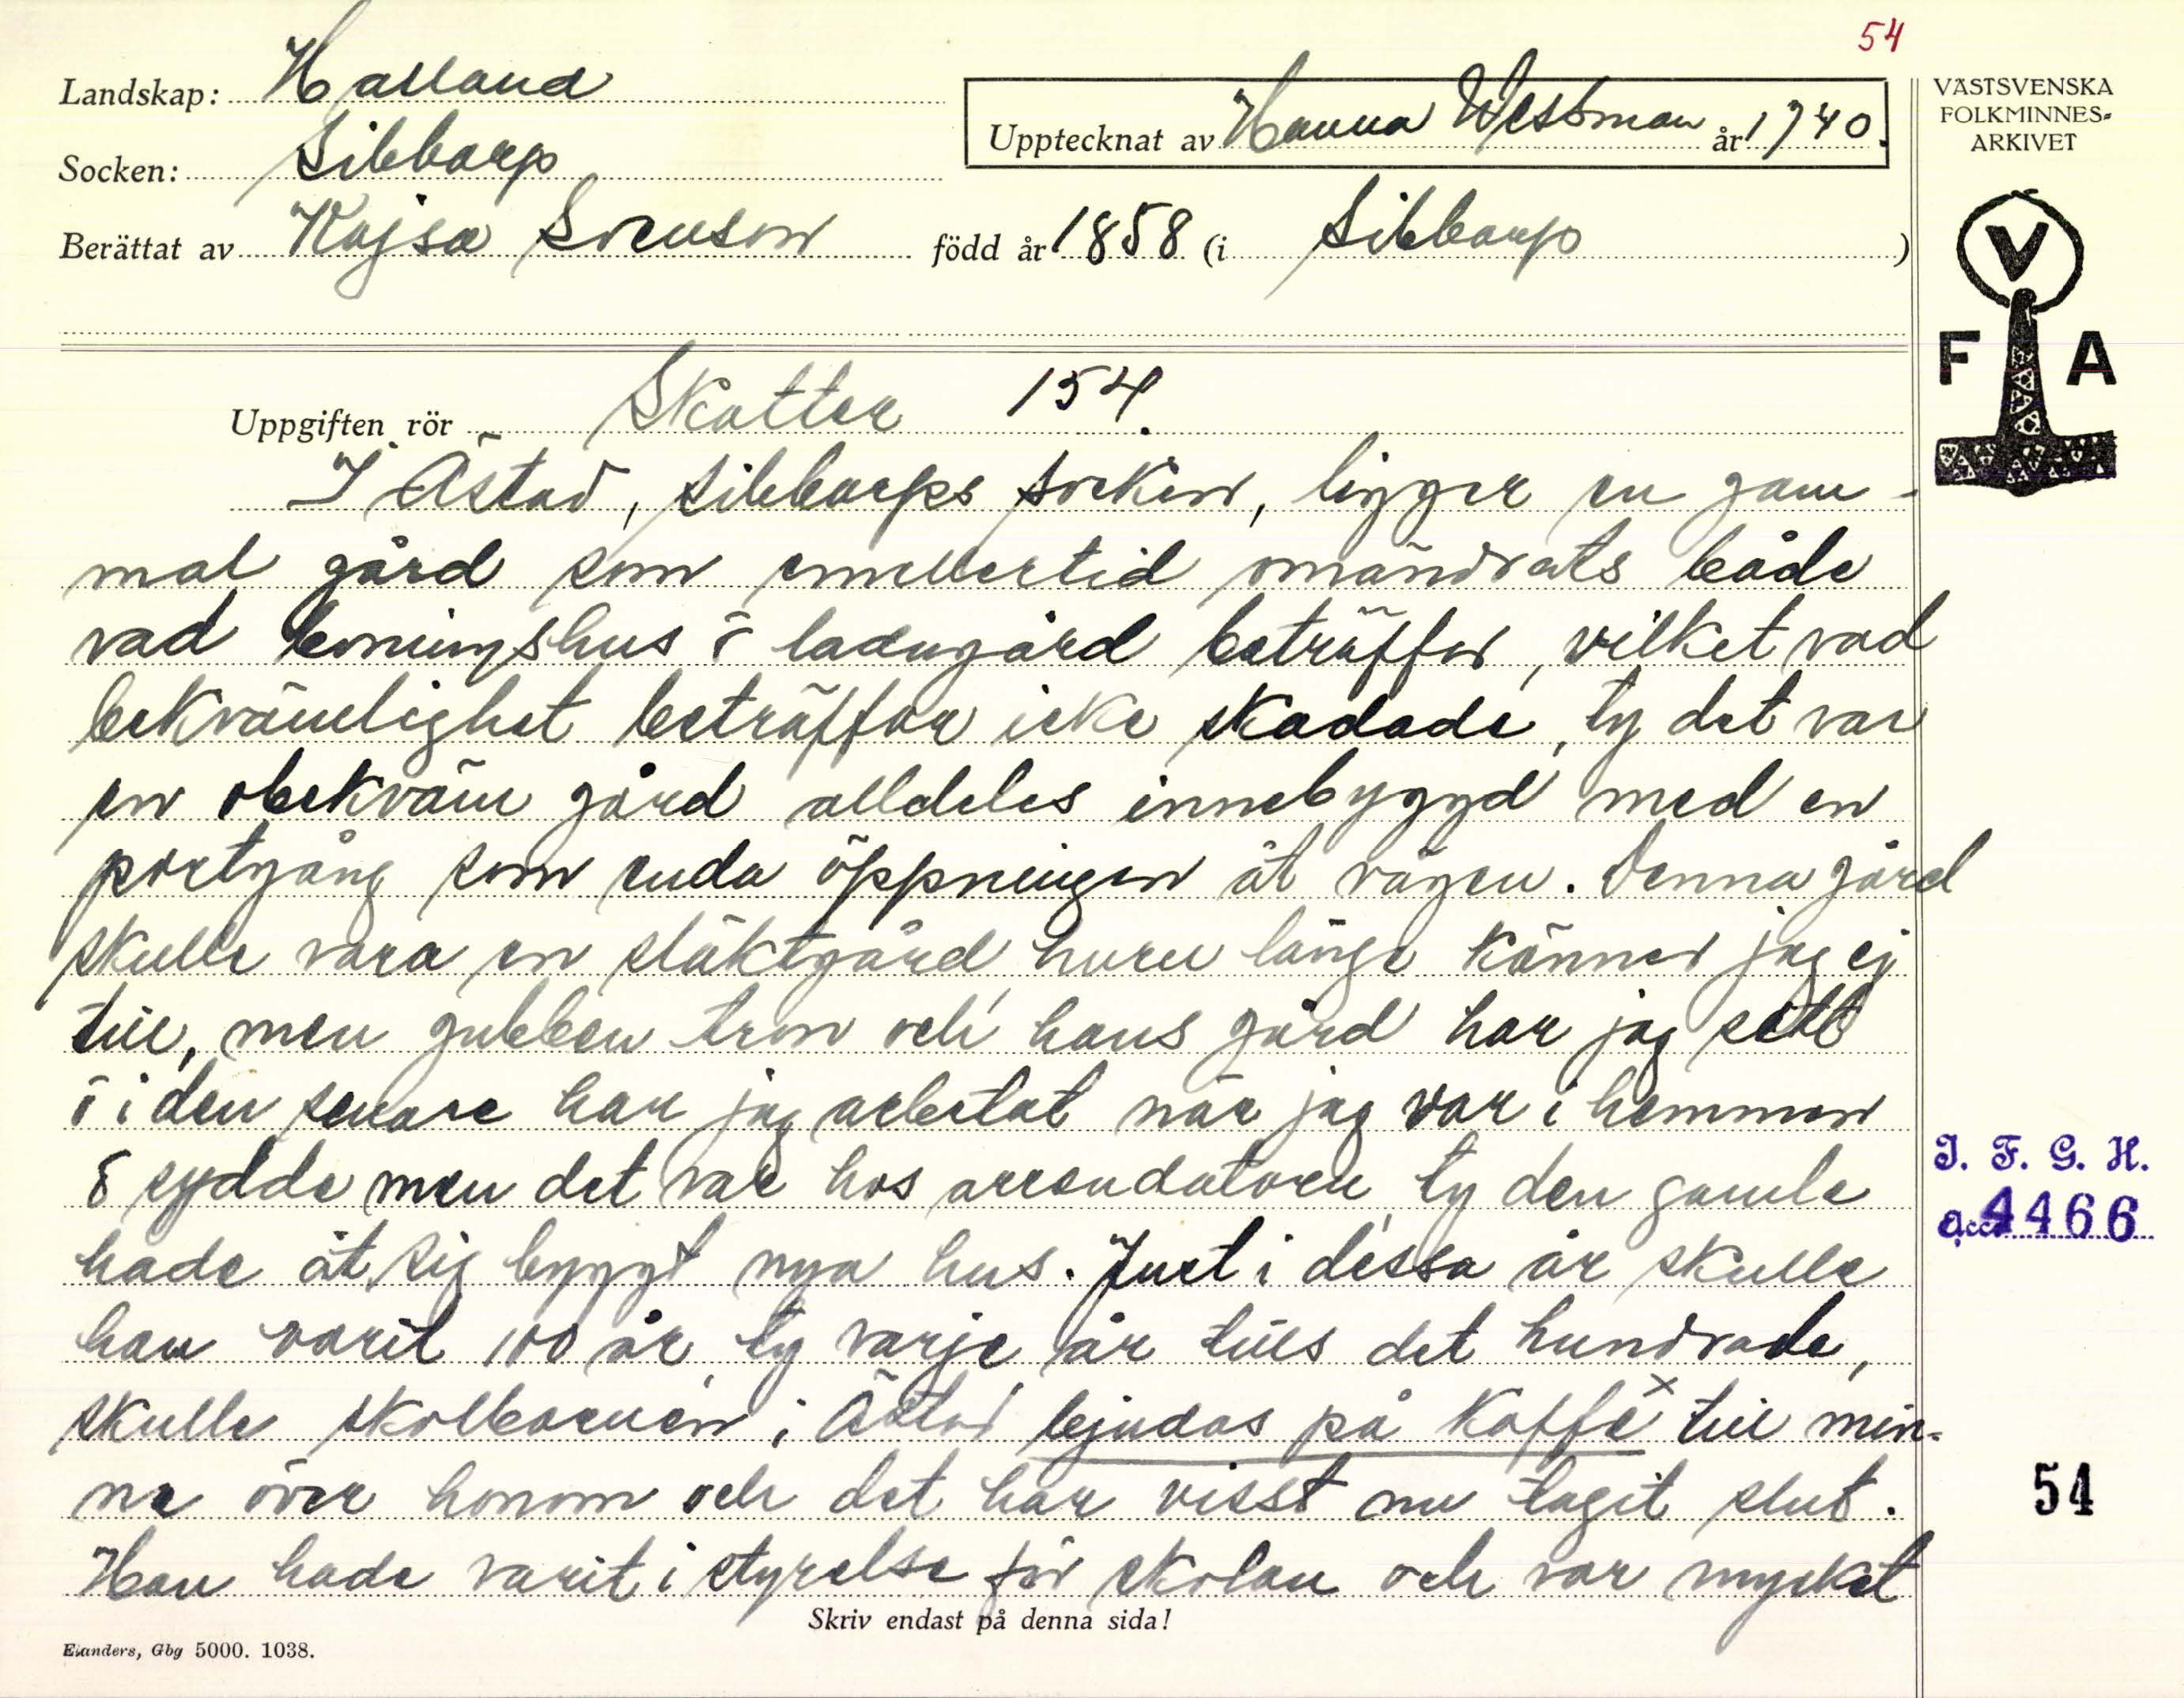 54
Landskap: Halland
VÄSTSVENSKA
FOLKMINNES-
ARKIVET
Upptecknat av Hanna Westman år 1940.
Socken: Sibbarp
Berättat av Kajsa Svenson född år 1858 (i Sibbarp)
V
F A
Uppgiften rör Skatter 154.
I Ästad, Sibbarps socken, ligger en gam-
mal gård som emellertid omändrats både
vad boningshus o ladugård beträffar, vilket vad
bekvämlighet beträffar icke skadade, ty det var
en obekväm gård alldeles innebyggd med en
portgång som enda öppningen åt vägen. Denna gård
skulle vara en släktgård, huru länge känner jag ej
till, men gubben tron och hans gård har jag sett
o i den senare har jag arbetat när jag var i hemmen
o sydde men det var hos arrendatorn, ty den gamle
hade åt sig byggt nya hus. Just i dessa år skulle
han varit 100 år, ty varje år tills det hundrade,
skulle skolbarnen i Ästad bjudas på kaffe x till min-
ne över honom och det har visst nu tagit slut.
Han hade varit i styrelse för skolan och var mycket
Skriv endast på denna sida!
Elanders, Gbg 5000. 1038.
I. F. G. H.
acc. 4466
54